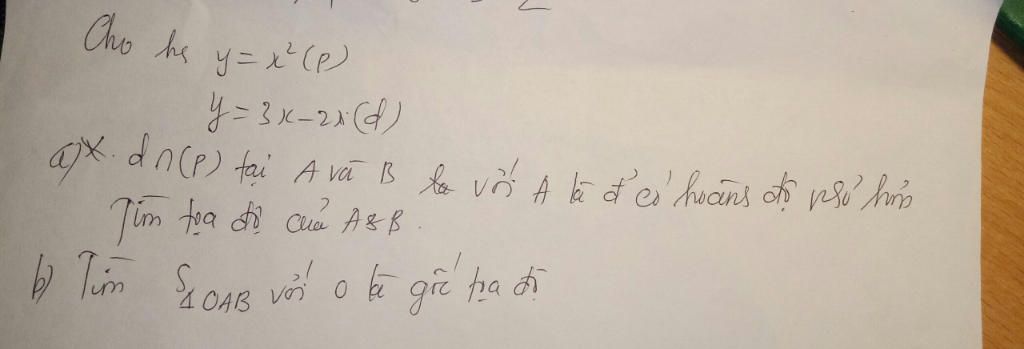 Cho hs y = x² (P)
y = 3x - 2 (d)
a) d ∩ (P) tại A và B với A là đ' có hoành độ nhỏ hơn
Tìm tọa độ của A & B.
b) Tìm S Δ OAB với O là gốc tọa độ